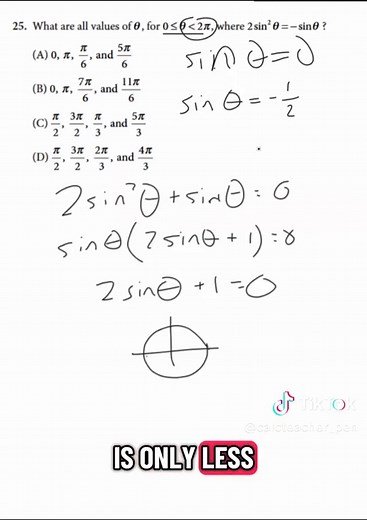 25. What are all values of θ, for 0 ≤ θ < 2π, where 2 sin² θ = −sin θ ?
(A) 0, π, π/6, and 5π/6
(B) 0, π, 7π/6, and 11π/6
(C) π/2, 3π/2, π/3, and 5π/3
(D) π/2, 3π/2, 2π/3, and 4π/3
sin θ = 0
sin θ = - 1/2
2 sin² θ + sin θ = 0
sin θ (2 sin θ + 1) = 0
2 sin θ + 1 = 0
TikTok
IS ONLY LESS